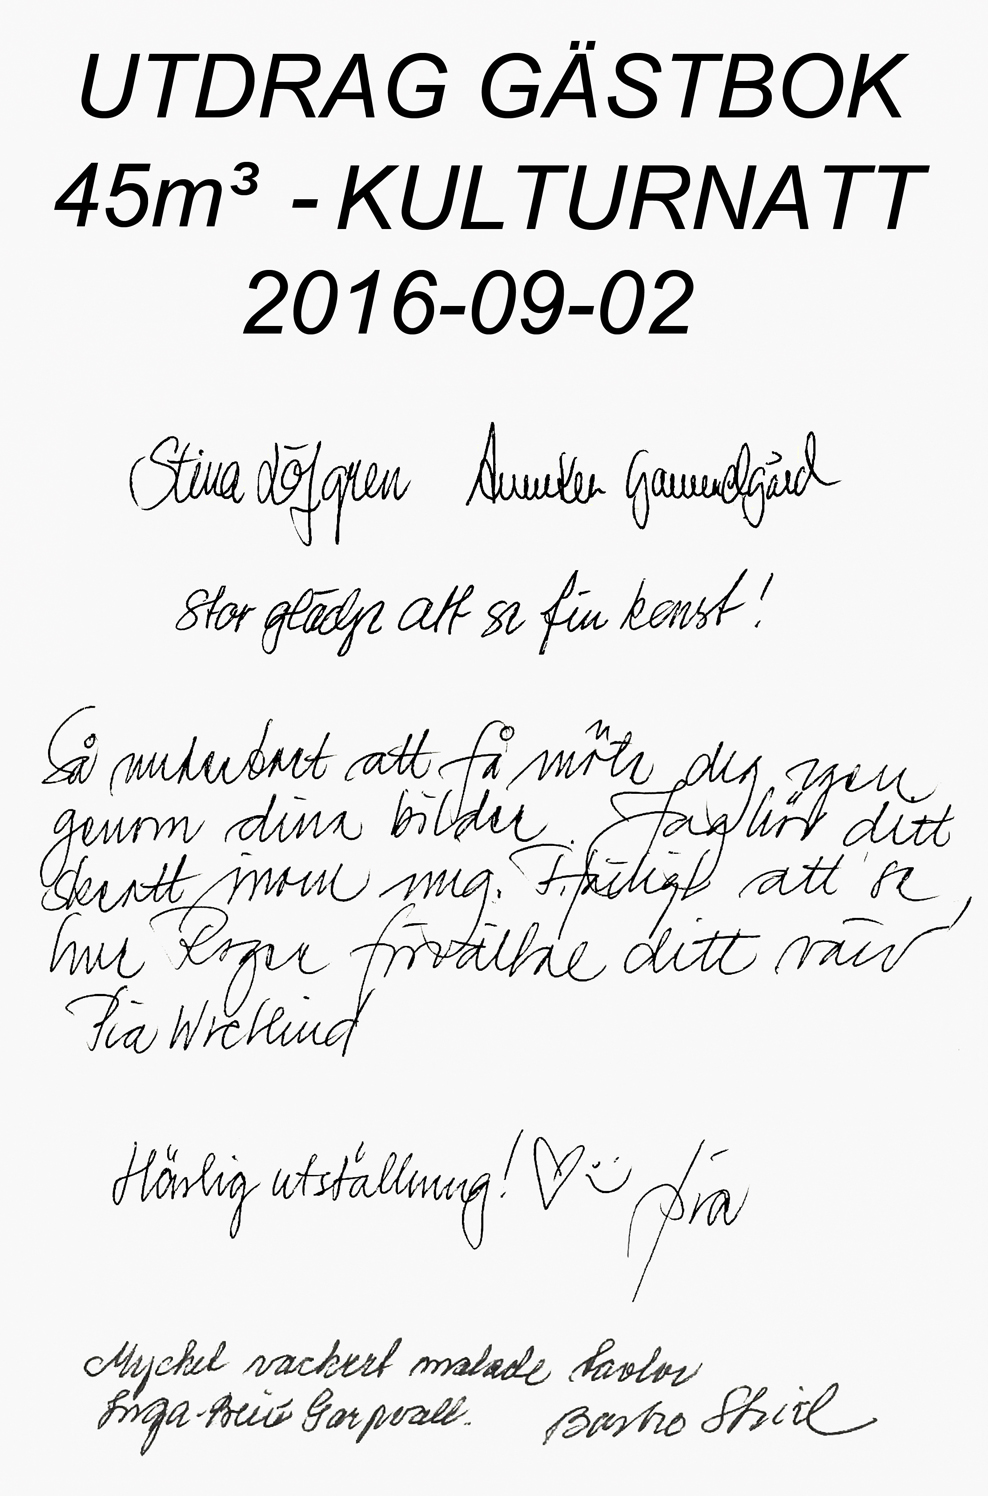 UTDRAG GÄSTBOK
45m³ - KULTURNATT
2016-09-02
Stina Löfgren
stor glädje att se fin konst!
Så underbart att få möta dig igen
genom dina bilder. Jag hör ditt
skratt inom mig. Fiffigt att se
hur Roger förvaltar ditt värv
Pia Wrethind
Härlig utställning! ♡
Mycket vackert malade tavlor
Inga-Britt Garpvall.